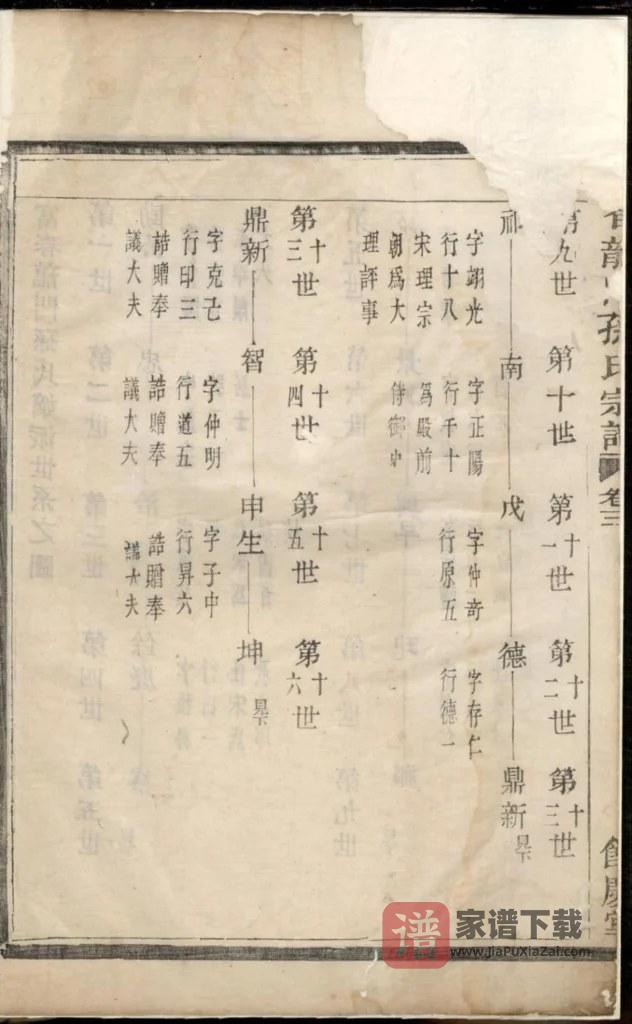 龍
孫氏宗譜
卷三
餘慶堂
第九世 第十世 第十一世 第十二世 第十三世
南 戊 德 鼎新 見下
字翊光 字正陽 字仲奇 字存仁
行十八 行千十 行原五 行德一
宋理宗 為殿前
朝為大 侍御史
理評事
第十三世 第十四世 第十五世 第十六世
鼎新 智 申生 坤 見下
字克己 字仲明 字子中
行印三 行道五 行昇六
誥贈奉 誥贈奉 誥贈奉
議大夫 議大夫 議大夫
谱 家谱下载
www.JiaPuXiaZai.com